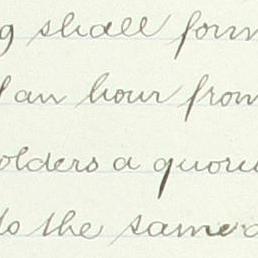 g shall form
an hour from
olders a quoru
the same